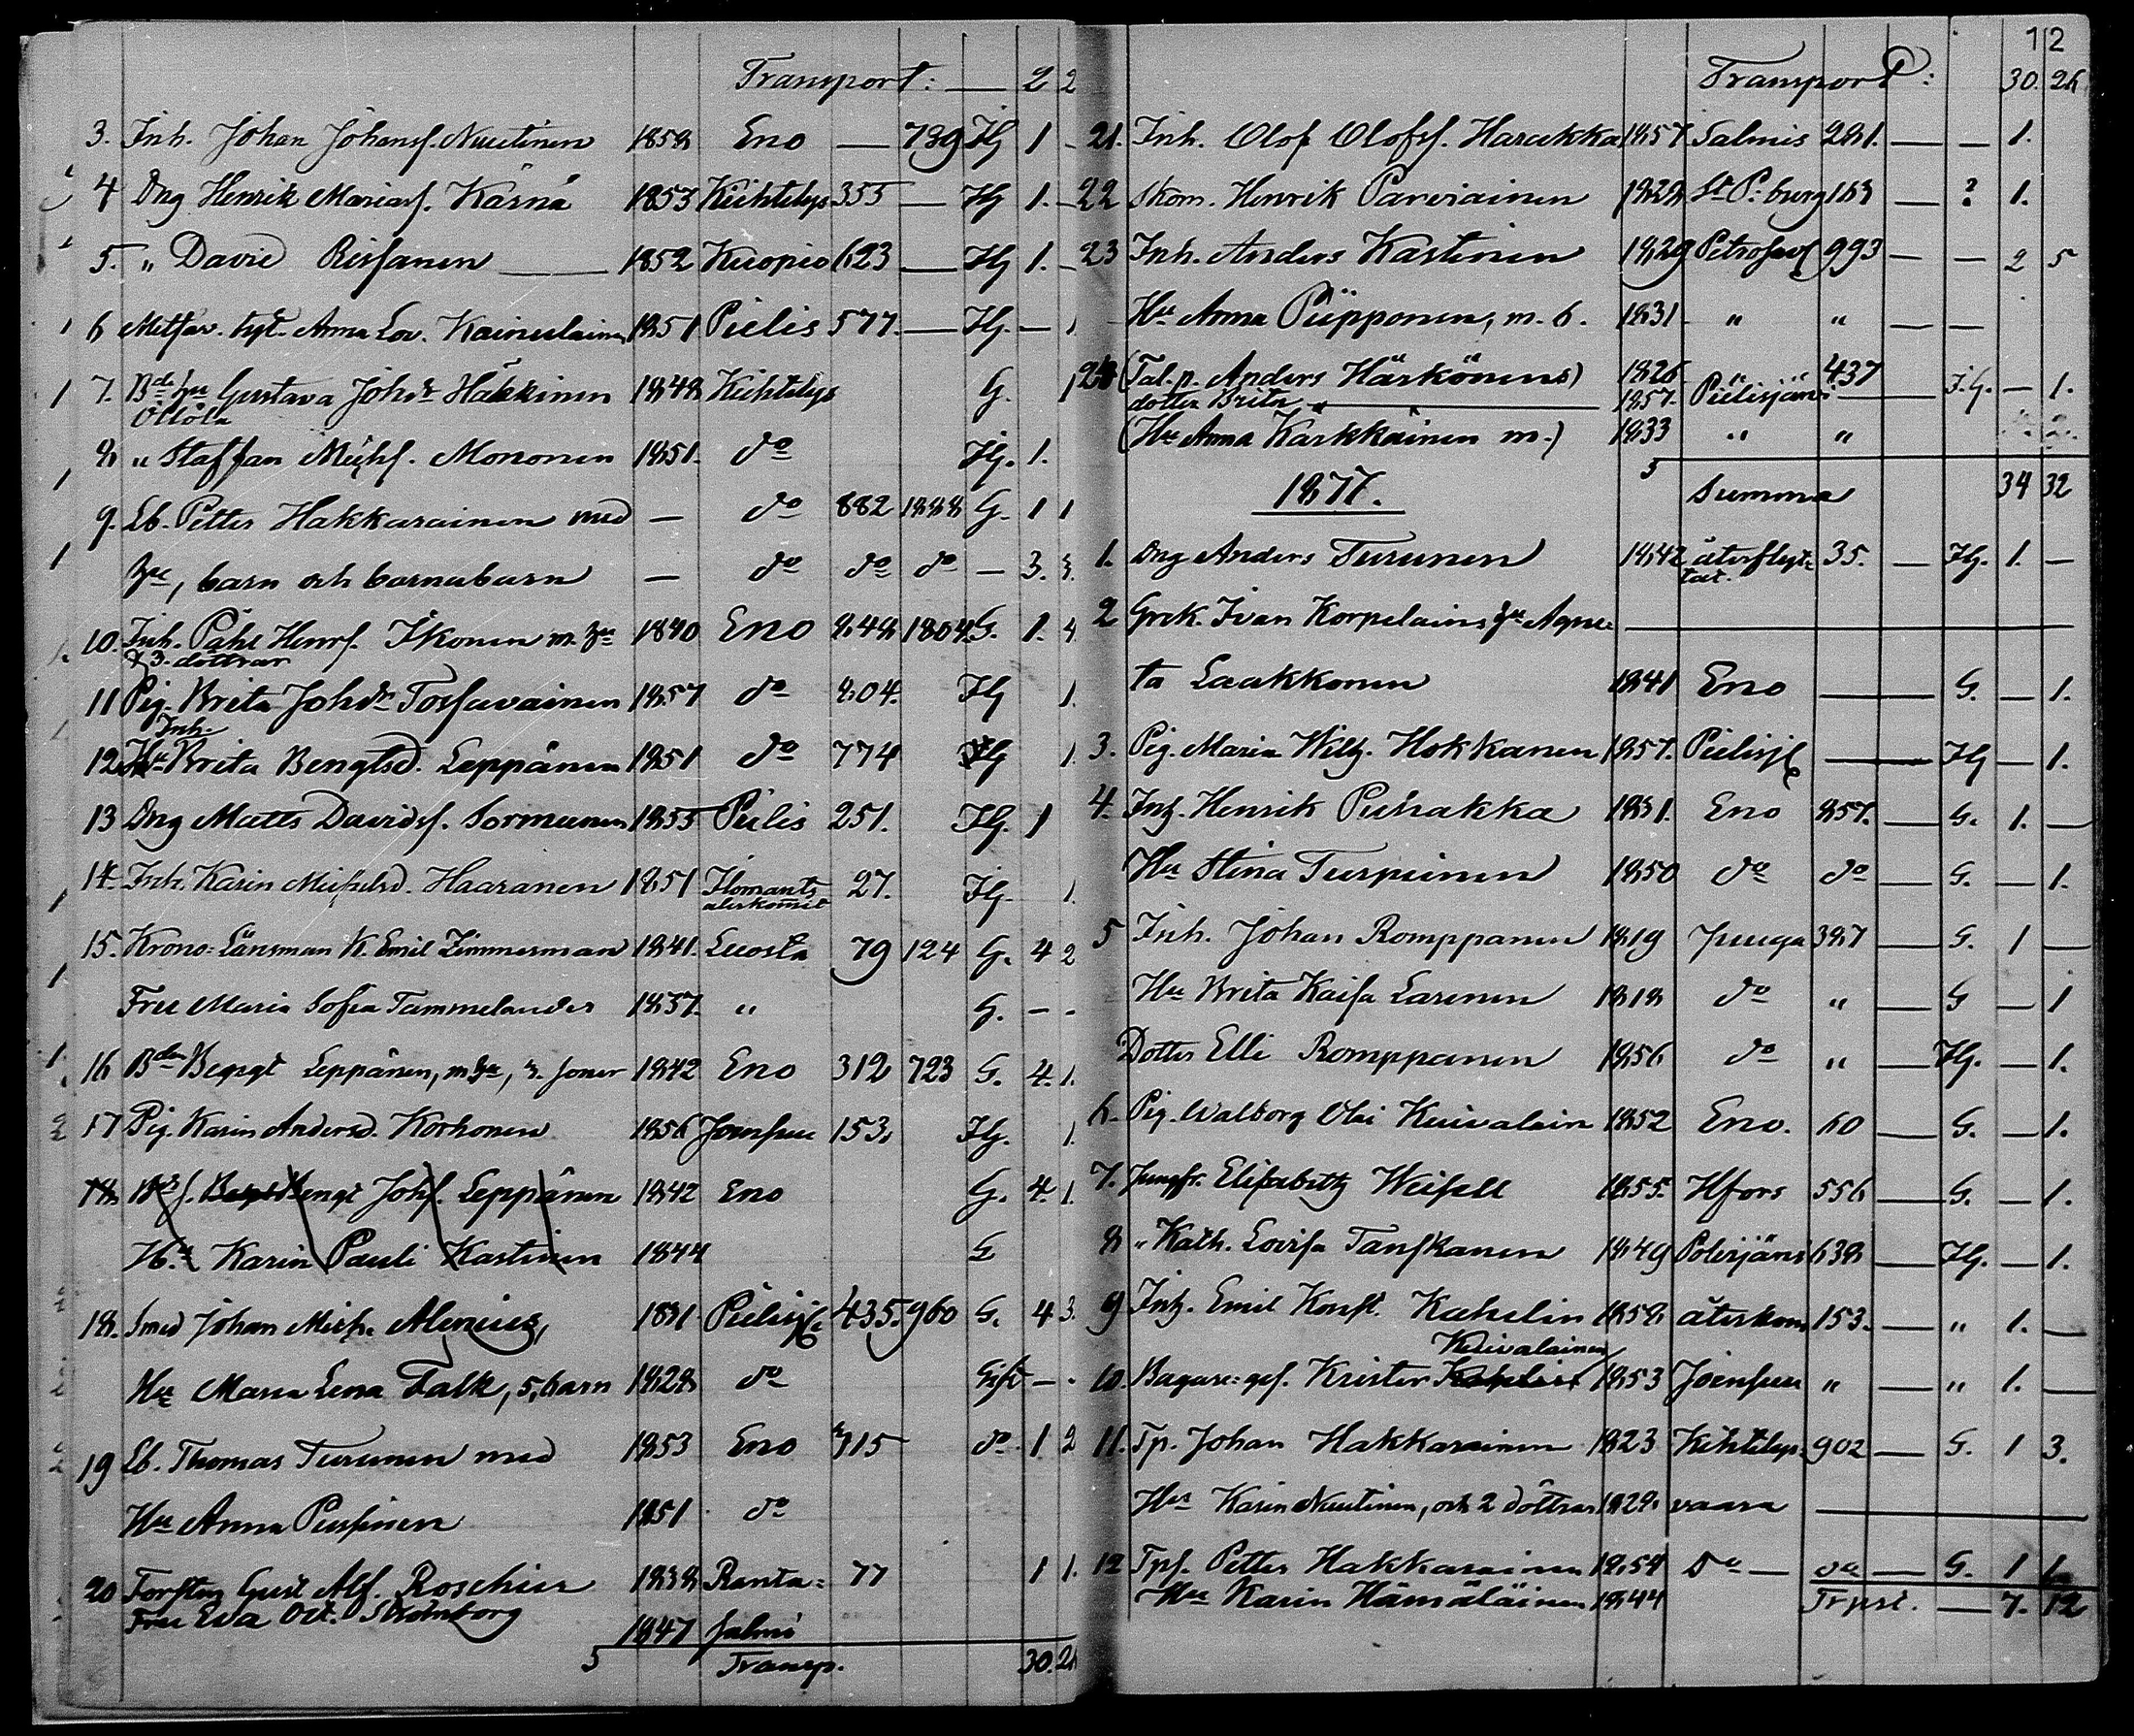 Transport: — 2 2
3. Inh. Johan Johansf. Nuutinen 1858 Eno — 739 Ig 1 -
4 Dng Henrik Mariasf. Kärnä 1853 Kiihtelys 355 — Ig 1. -
5. " David Reisanen — 1852 Kuopio 623 — Ig 1. -
6 Anna Lov. Kainulainen 1851 Pielis 577. — Ig. — 1
7. Gustava Johdr Häkkinen 1848 Kiihtelys G. 1
Öllölä
8 " Staffan Michf. Mononen 1851. do Ig. 1.
9. Lb. Petter Hakkarainen med — do 882 1888 G. 1 1
hu, barn och barnabarn — do do do — 3. 3.
10. Inh. Påhl Henrf. Ikonen m. hu 1840 Eno 848 1804 G. 1. 4.
& 3. döttrar
11 Pig. Brita Johdr Tossavainen 1857 do 804. Ig 1.
Inh.
12 Hu Brita Bengtsd. Leppänen 1851 do 774 Ig 1.
13 Dng Matts Davidsf. Sormunen 1855 Pielis 251. Ig. 1
14 Inh. Karin Michelsd. Haaranen 1851 Ilomants 27. Ig. 1.
återkommit
15. Krono-Länsman K. Emil Zimmerman 1841. Luosta 79 124 G. 4 2
Fru Maria Sofia Tammelander 1837. " G. - -
16 Bden Bengt Leppänen, m. hu, 3. soner 1842 Eno 312 723 G. 4. 1.
17 Pig. Karin Andersd. Korhonen 1856 Joensuu 153. Ig. 1.
18 Bengt Johf. Leppänen 1842 Eno G. 4. 1.
Hu Karin Pauli Kastinen 1844 G
18. Smed Johan Mich. Alenius, 1831 Pielisj 435. 960 G. 4 3.
Hu Maria Lena Falk, 5, barn 1828 do Gift - -
19 Lb. Thomas Turunen med 1853 Eno 715 do 1 2
Hu Anna Pussinen 1851 do
20 Forstm Gust Alf. Roschier 1838 Ranta= 77 1 1.
Fru Eva Oct. Strömborg 1847 salmi
5 Transp. 30. 26
12
Transport: 30. 26
21. Inh. Olof Olofsf. Harakka 1857 Salmis 281. — — 1.
22 Skom. Henrik Parviainen 1828 St P. burg 163 — ? 1.
23 Inh. Anders Kastinen 1829 Petrosav 993 — — 2 5
Hu Anna Piipponen, m. 6. 1831 " " — —
24 (Tal. p. Anders Härkönens) 1826 " " 437
dotter Brita — 1857. Pielisjärvi — I.G. — 1.
(Hu Anna Karkkäinen m.) 1833 " "
5 Summa 34 32
1877.
1. Dng Anders Turunen 1842 återflyt- 35. — Ig. 1. —
tat.
2 Grek. Ivan Korpelains hu Agnee-
ta Laakkonen 1841 Eno — G. — 1.
3. Pig. Maria Wilh. Hokkanen 1857. Pielisj — Ig — 1.
4. Inh. Henrik Puhakka 1831. Eno 857. — G. 1. —
Hu Stina Turpinen 1850 do do — G. — 1.
5 Inh. Johan Romppanen 1819 Juuga 387 — G. 1 —
Hu Brita Kaisa Larinen 1818 do " — G — 1
Dotter Elli Romppanen 1856 do " — Ig. — 1.
6. Pig. Walborg Olai Kuivalain 1852 Eno. 60 — G. — 1.
7. Jungfr. Elisabeth Weisell 1855. Hfors 556 — G. — 1.
8 " Kath. Lovisa Tanskanen 1849 Polvijärvi 638 — Ig. — 1.
9 Inh. Emil Konst. Kahelin 1858 återkom 153. — " 1. —
Kuivalainen
10. Bagare-ges. Krister Kahelin 1853 Joensuu " — " 1. —
11. Tp. Johan Hakkarainen 1823 Kihtelys- 902 — G. 1 3.
Hu Karin Nuutinen, och 2 döttrar 1828 vaara —
12 Tpf. Petter Hakkarainen 1854 Do — do — G. 1 1.
Hu Karin Hämäläinen 1844 Trpst. — 7. 12